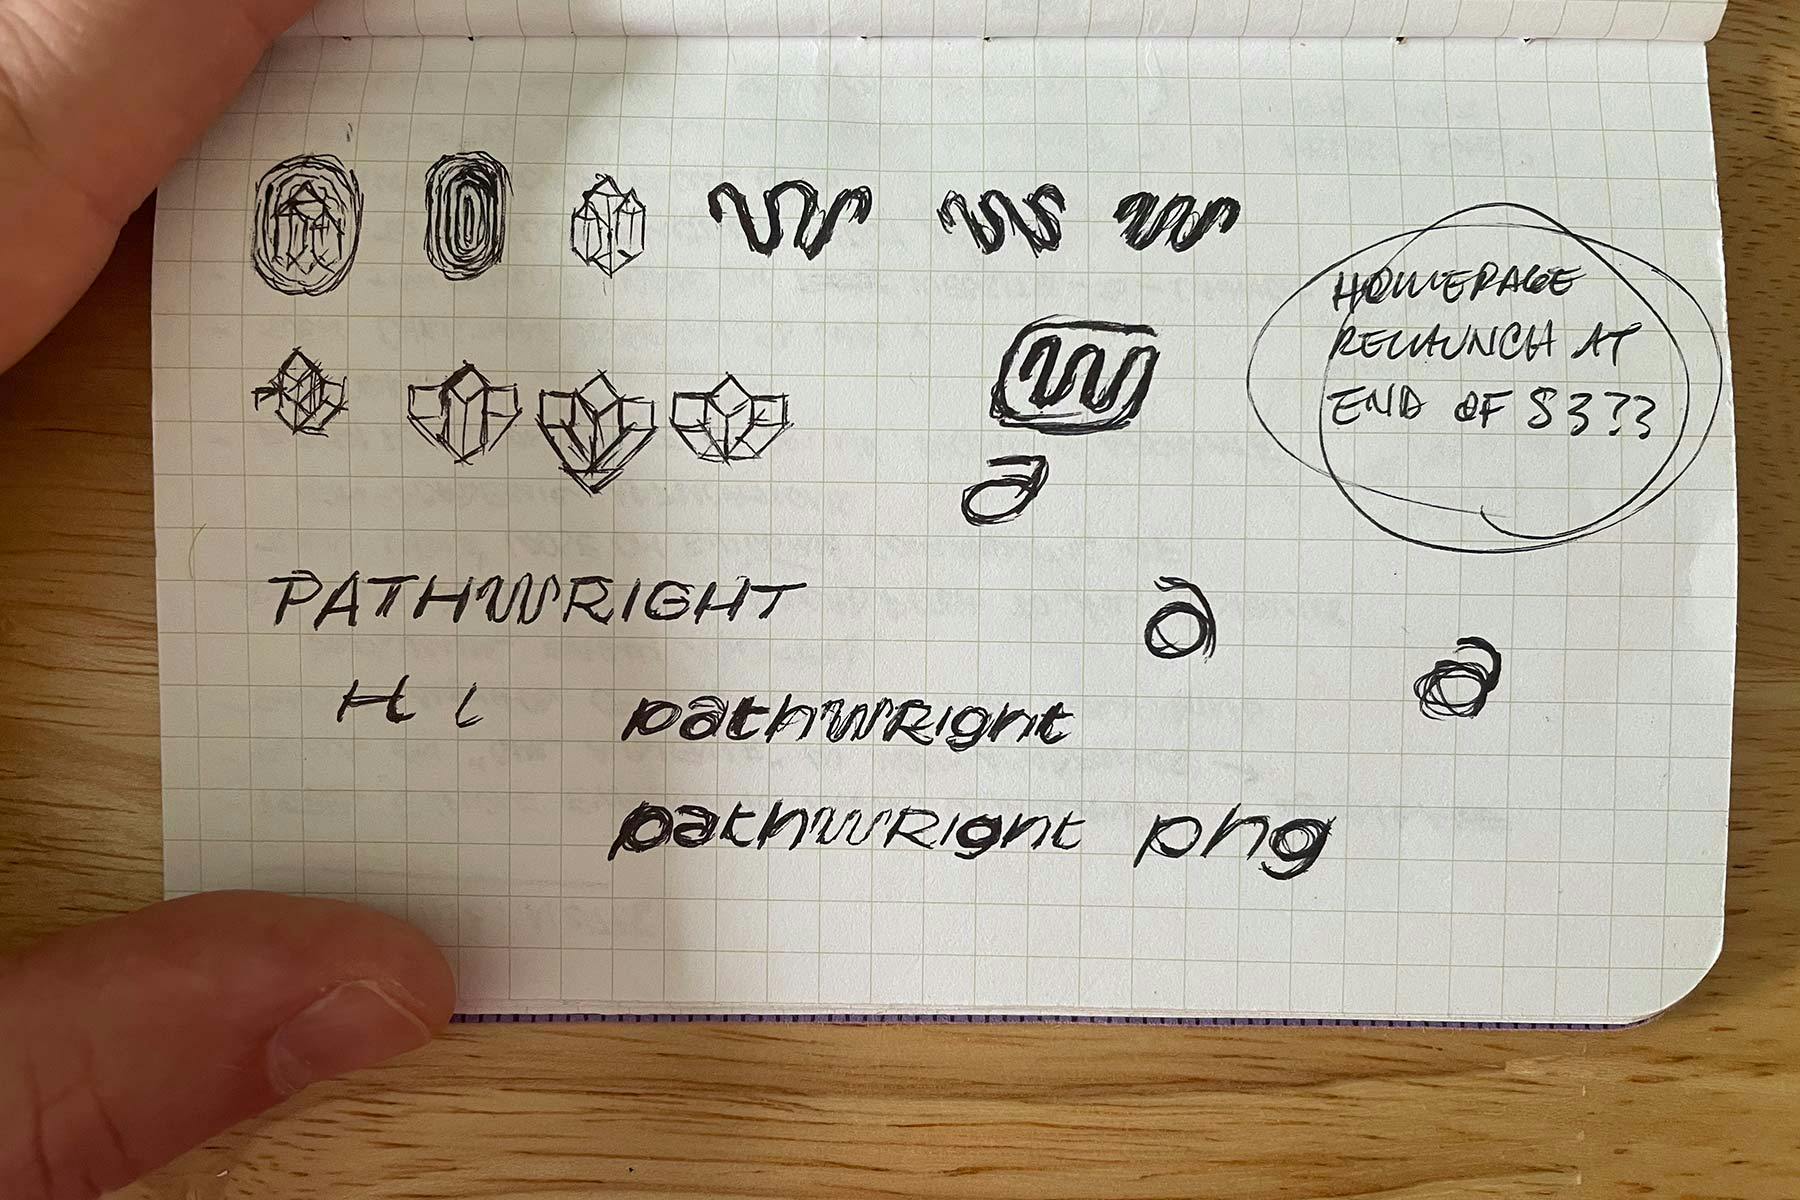 HOMEPAGE
RELAUNCH AT
END OF S3??
a
PATHWRIGHT
a
a
H i
pathWRight
pathWRight phg